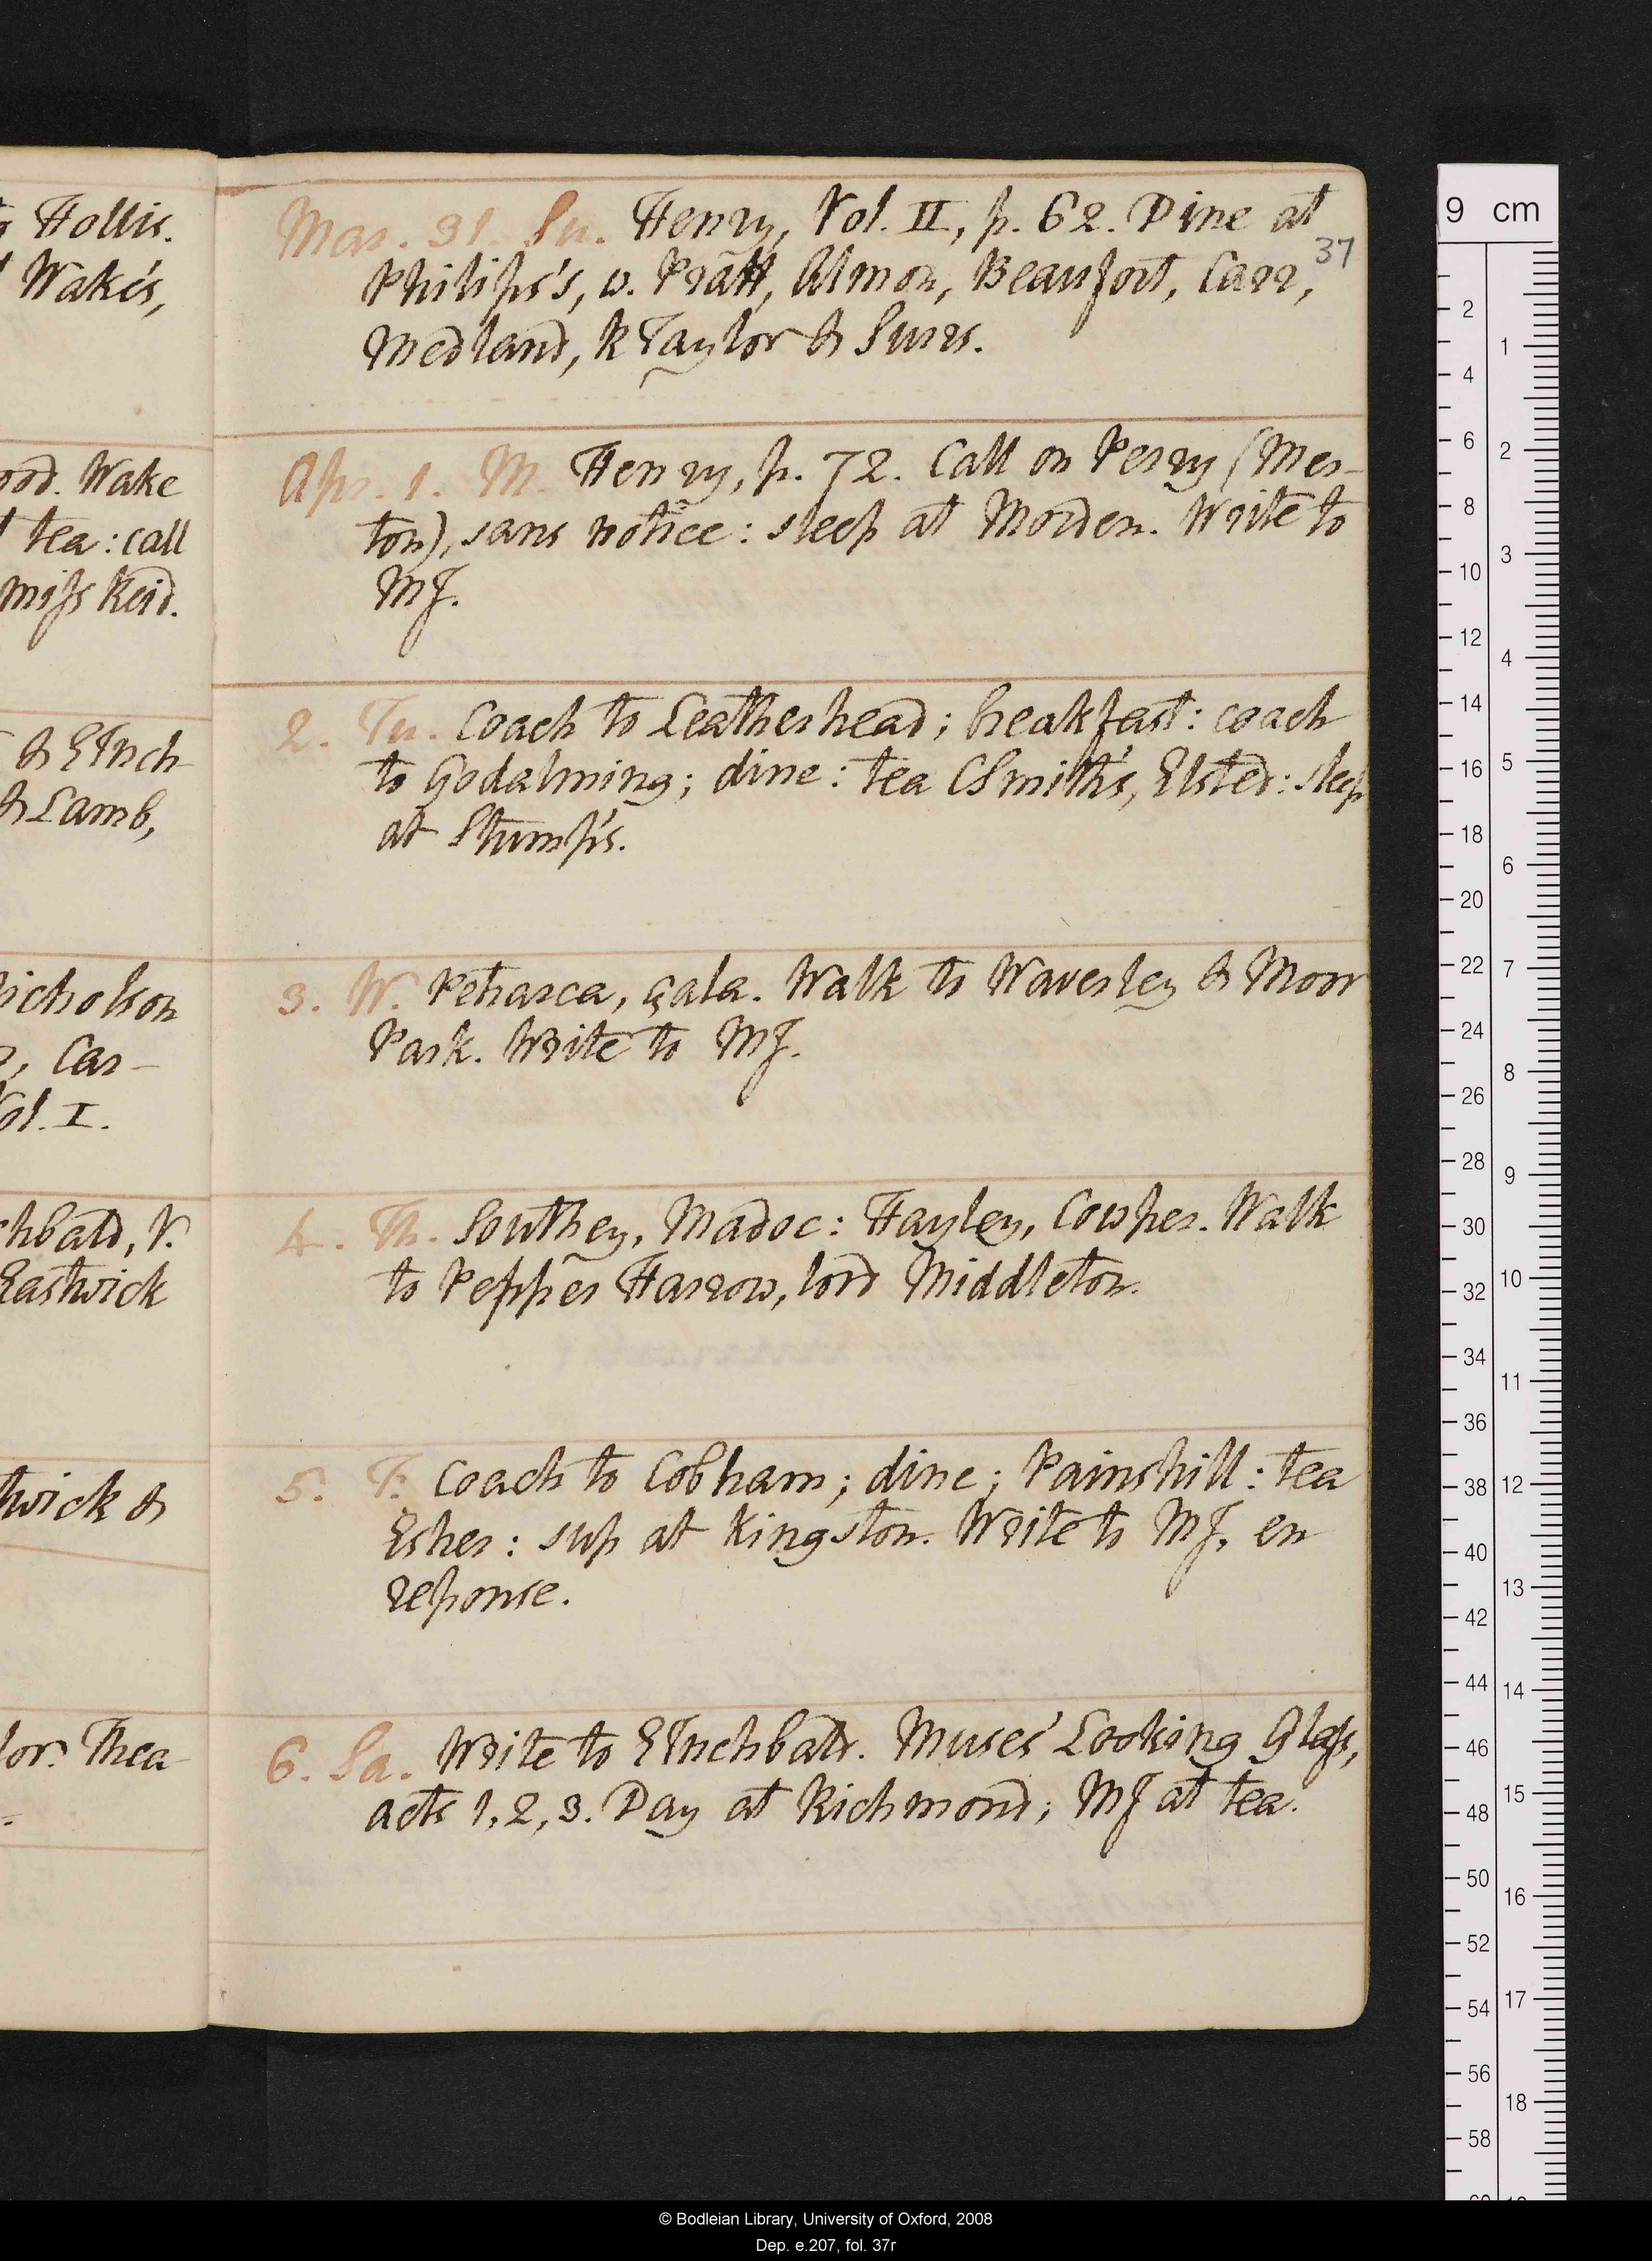 g Hollis.
Wake's,
ood. Wake
tea: call
miſs Reid.
& EInch
& Lamb,
Nicholson
, Car-
Vol. I.
chbald, V.
Eastwick
twick &
lor. Thea-
Mar. 31. Su. Henry, Vol. II, p. 62. Dine at
37
Philips's, w. Pratt, Almon, Beaufort, Carr,
Medland, R Taylor & Surrs.
Apr. 1. M. Henry, p. 72. Call on Perry (Mer-
ton), sans notice: sleep at Morden. Write to
MJ.
2. Tu. Coach to Leatherhead; breakfast: coach
to Godalming; dine: tea CSmith's, Elsted: sleep
at Stump's.
3. W. Petrarca, çala. Walk to Waverley & Moor
Park. Write to MJ.
4. Th. Southey, Madoc: Hayley, Cowper. Walk
to Pepper Harrow, lord Middleton.
5. F. Coach to Cobham; dine; Painshill: tea
Esher: sup at Kingston. Write to MJ, en
reponse.
6. Sa. Write to EInchbald. Muses' Looking Glaſs,
acts 1, 2, 3. Day at Richmond; MJ at tea.
9 cm
2 4 6 8 10 12 14 16 18 20 22 24 26 28 30 32 34 36 38 40 42 44 46 48 50 52 54 56 58
1 2 3 4 5 6 7 8 9 10 11 12 13 14 15 16 17 18
© Bodleian Library, University of Oxford, 2008
Dep. e.207, fol. 37r